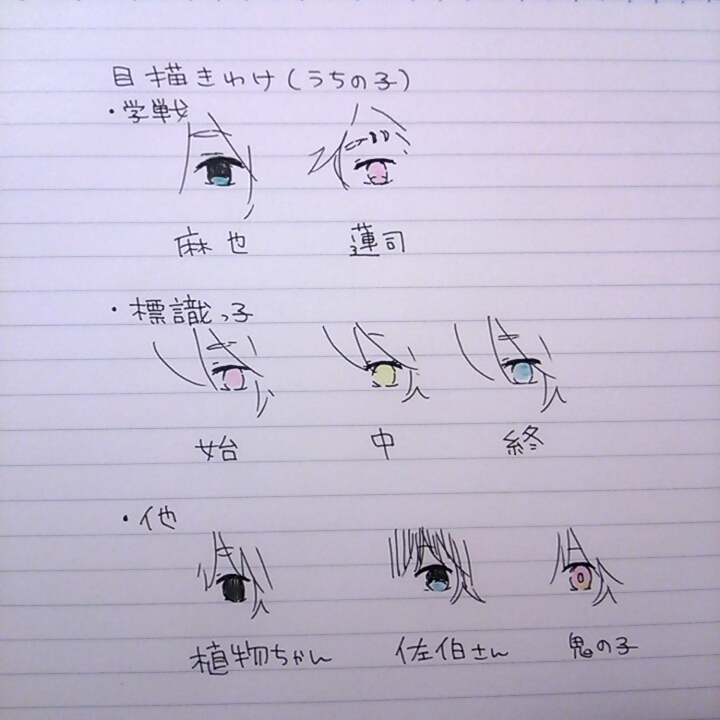 目描きわけ(うちの子)
・学戦
麻也 蓮司
・標識っ子
始 中 終
・他
植物ちゃん 佐伯さん 鬼の子